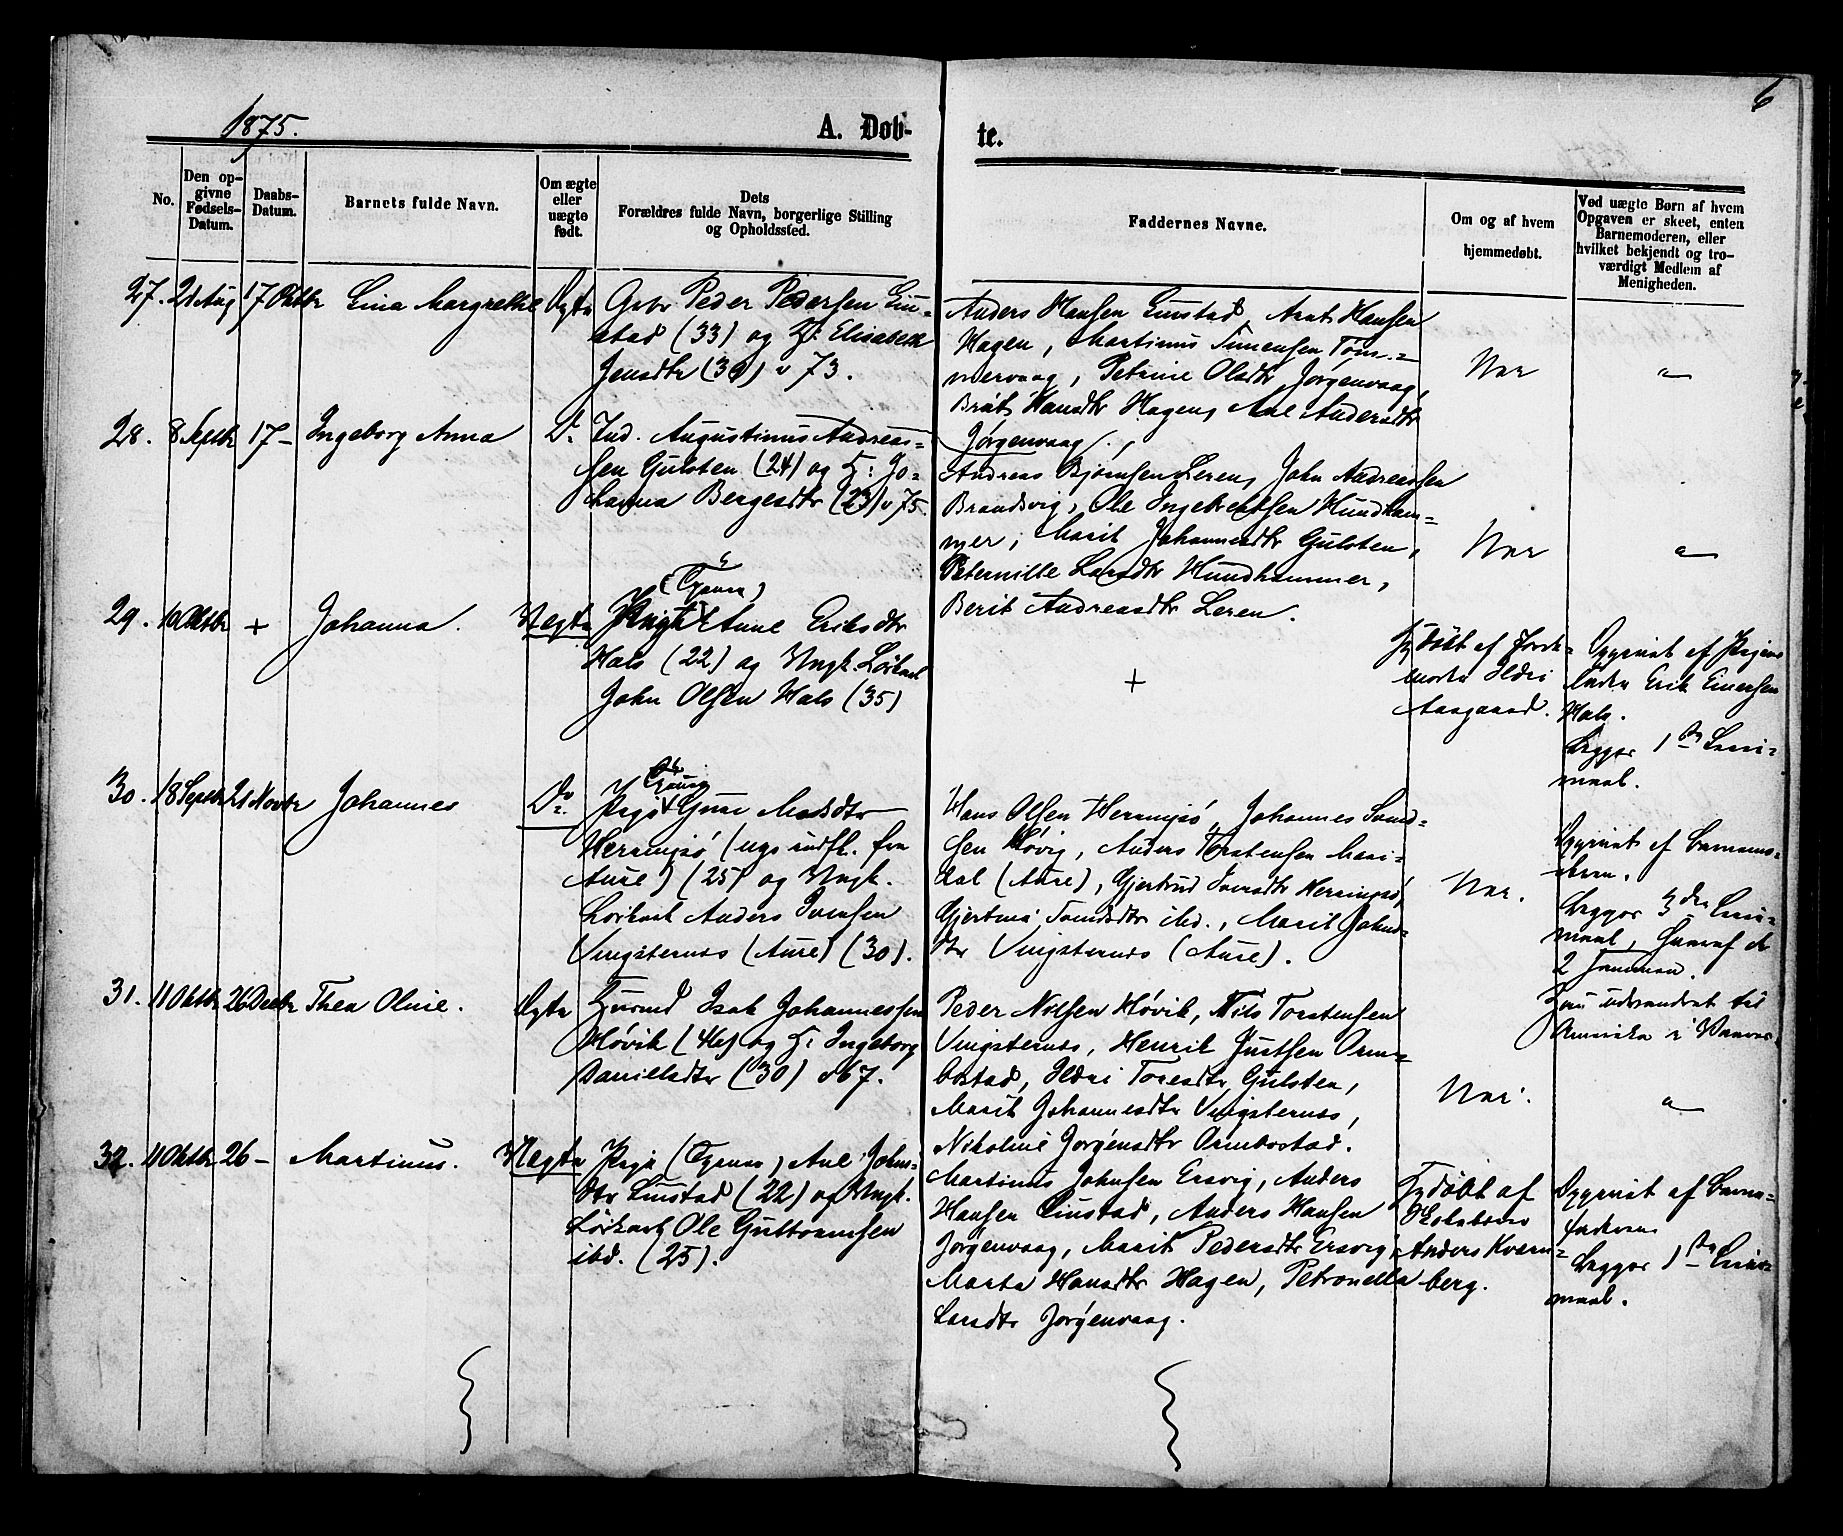 1875.
A. Døb-
te.
6
No.
Den op-
givne
Fødsels-
Datum.
Daabs-
Datum.
Barnets fulde Navn.
Om ægte
eller
uægte
født.
Dets
Forældres fulde Navn, borgerlige Stilling
og Opholdssted.
Faddernes Navne.
Om og af hvem
hjemmedøbt.
Ved uægte Børn af hvem
Opgaven er skeet, enten
Barnemoderen, eller
hvilket bekjendt og tro-
værdigt Medlem af
Menigheden.
27. 21 Aug 17 Oktbr Lina Margrethe Ægte
Peder Pedersen Liu-
stad (33) og H: Elisabeth
Jensdtr (30) v 73.
Anders Hansen Liustad, Arnt Hansen
Hagen, Martinus Simensen Tøm-
mervaag, Petrine Olsdtr Jørgenvaag,
Bråt Hansdtr Hagen, Ane Andersdtr
Jørgenvaag.
Nei
"
28. 8 Septbr 17- Ingeborg Anna Do
Ind. Augustinus Andreas-
sen Gulsten (24) og H: Jo-
hanna Bergesdtr (23) v 75.
Andreas Bjørnsen Leren, John Andreassen
Brandsvig, Ole Ingebrektsen Hundham-
mer, Marit Johannesdtr Gulsten,
Peternille Larsdtr Hundhammer,
Berit Andreasdtr Leren.
Nei
"
29. 10 Oktbr + Johanna. Uægte
Pige Ane Eriksdtr
Hals (22) og Ungk. Løskarl
John Olsen Hals (35)
+
Hjdøbt af Jord-
moder Ildri
Aasgaard.
Opgivet af Pigens
Fader Erik Einersen
Hals.
Begges 1ste Leier-
maal.
30. 18 Septbr 21 Novbr Johannes Do
Pige Guri Madsdtr
Herringsø (nys indfl. fra
Aure) (25) og Ungk.
Løskarl Anders Iversen
Vingsternes (Aure) (30).
Hans Olsen Herringsø, Johannes Svend-
sen Høvig, Anders Torstensen Mari-
dal (Aure), Gjertrud Iversdtr Herringsø,
Gjertine Svendsdtr ibd., Marit Johns-
dtr Vingsternes (Aure).
Nei.
Opgivet af Barnemo-
deren.
Begges 3die Leier-
maal, heraf de
2 sammen.
31. 11 Oktbr 26 Decbr Thea Oline. Ægte
Isak Johannessen
Høvik (46) og H: Ingeborg
Danielsdtr (30) v 67.
Peder Nilsen Høvik, Nils Torstensen
Vingsternes, Henrik Justsen Orm-
bostad, Ildri Toresdtr Gulsten,
Marit Johannesdtr Vingsternes,
Nikoline Jørgensdtr Ormbostad.
Nei.
"
32. 11 Oktbr 26- Martinus. Uægte
Pige Ane Johns-
dtr Liustad (22) og Ungk.
Løskarl Ole Guttormsen
ibd. (25).
Martinus Johnsen Ersvig, Anders
Hansen Liustad, Anders Hansen
Jørgenvaag, Marit Pedersdtr Ersvig,
Marta Hansdtr Hagen, Petronella
Larsdtr Jørgenvaag.
Hjdøbt af
Skoleholder
Anders Kvern-
berg.
Opgivet af Barne-
faderen
Begges 1ste Leier-
maal.